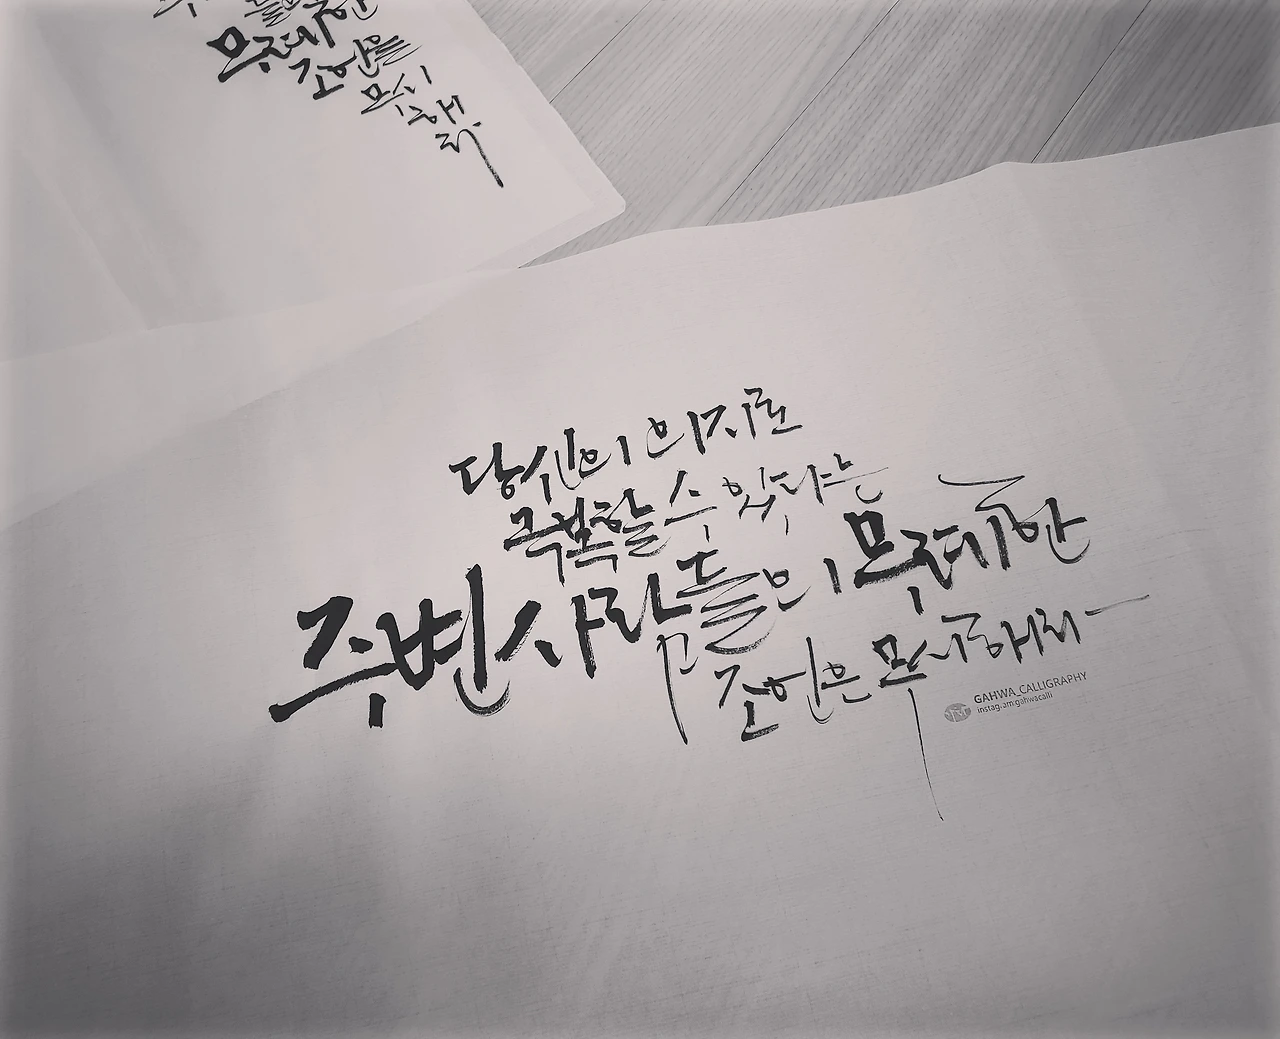 무례한
조언을
무시
해라
당신의 의지로
극복할 수 있다는
주변 사람들의 무례한
조언은 무시해라
GAHWA_CALLIGRAPHY
instagram:gahwacalli